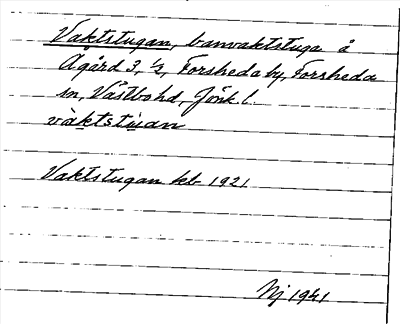 Vaktstugan, banvaktstuga å
Ågård 3, 1/2, Forsheda by, Forsheda
sn, Västbo hd, Jönk. l.
vàktstùan
Vaktstugan kb 1921
Nj 1941